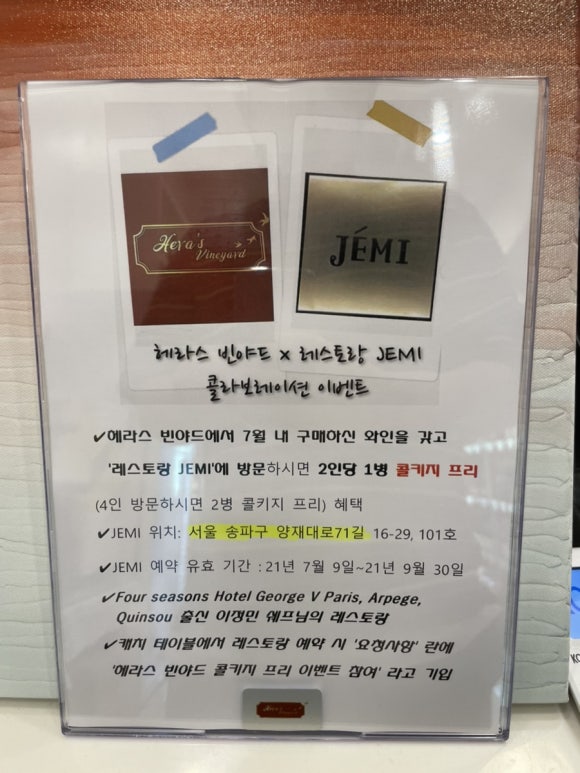 Hera's
Vineyard
JÉMI
헤라스 빈야드 x 레스토랑 JEMI
콜라보레이션 이벤트
✔헤라스 빈야드에서 7월 내 구매하신 와인을 갖고
'레스토랑 JEMI'에 방문하시면 2인당 1병 콜키지 프리
(4인 방문하시면 2병 콜키지 프리) 혜택
✔JEMI 위치: 서울 송파구 양재대로71길 16-29, 101호
✔JEMI 예약 유효 기간 : 21년 7월 9일~21년 9월 30일
✔Four seasons Hotel George V Paris, Arpege,
Quinsou 출신 이정민 쉐프님의 레스토랑
✔캐치 테이블에서 레스토랑 예약 시 '요청사항' 란에
'헤라스 빈야드 콜키지 프리 이벤트 참여' 라고 기입
Hera's
Vineyard